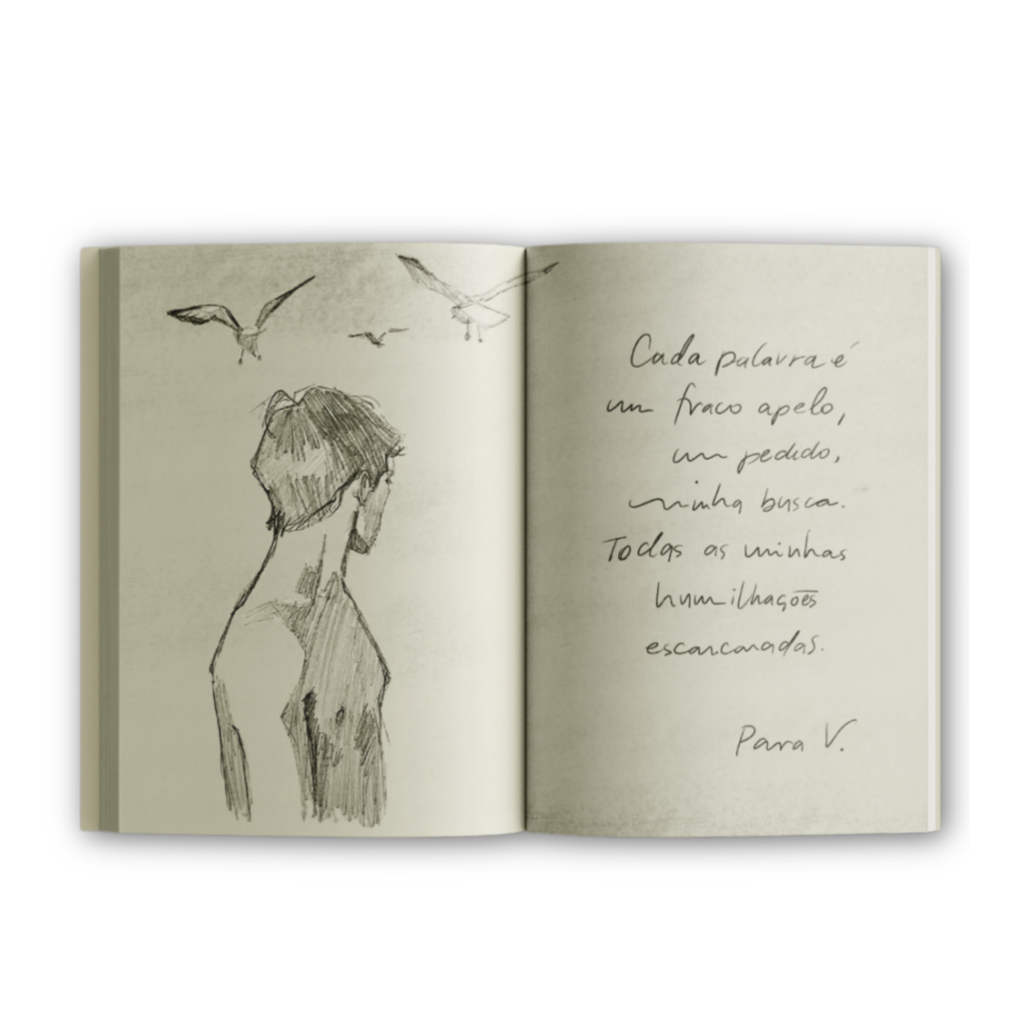 Cada palavra é
um fraco apelo,
um pedido,
minha busca.
Todas as minhas
humilhações
escancaradas.
Para V.